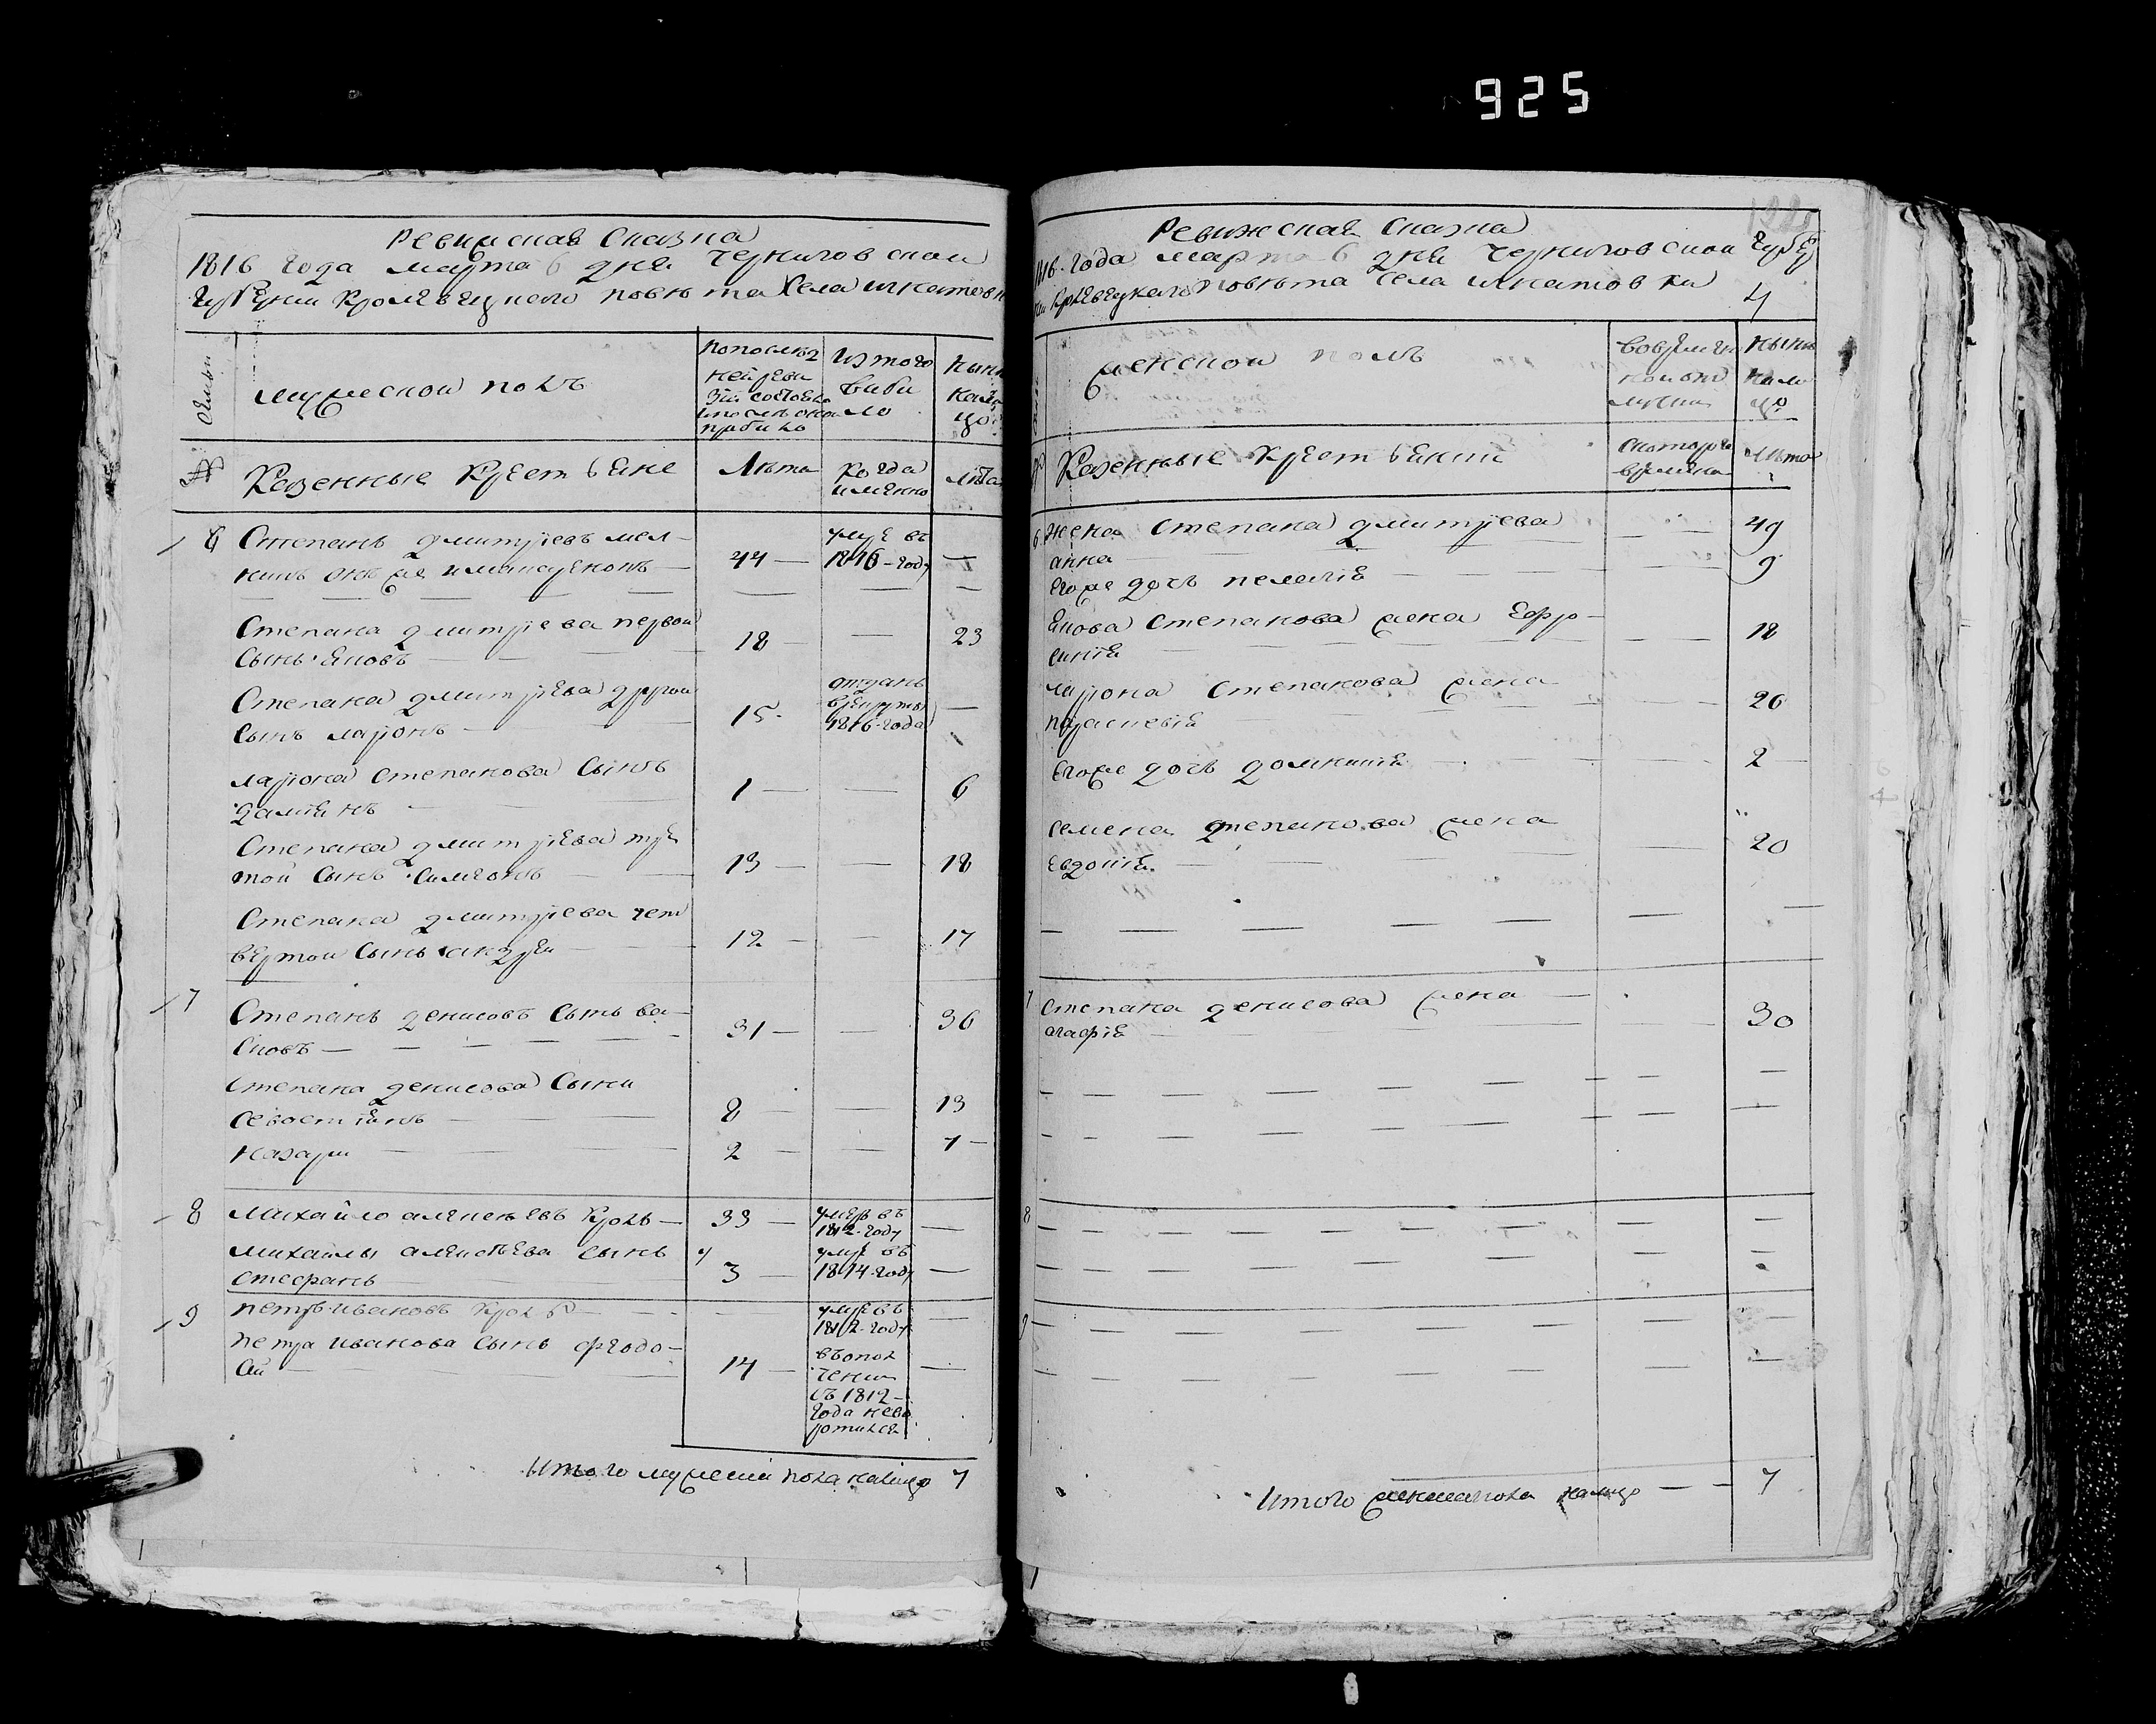 925
Ревижская Сказка
1816 года марта 6 дня Черниговской
Губернии Кролевецкого повета Села
мужеской полъ
Семьи
По последней ревизии состояло и после оной прибыло
Изтого выбило
Ныне налицо
№
Казенные Крестьяне
Лета
Когда именно
Лета
6 Степанъ дмитриевъ
44 —
умре въ
1816-году
Степана дмитриева первой
Сынъ Яковъ
18 — — 23
Степана дмитриева другой
Сынъ ларионъ
15
отданъ
врекруты
1816-года
лариона Степанова Сынъ
дамианъ
1 — — 6
Степана дмитриева тре
той Сынъ Симеонъ
13 — — 18
Степана дмитриева чет
вертой Сынъ андрей
12 — — 17
7 Степанъ денисовъ Сынъ
31 — — 36
Степана денисова Сыни
Севостианъ
8 — — 13
Назари
2 — — 7
8 Михайло алексеевъ Кроль — 33 —
умре въ
1812-году
михаилы алексеева Сынъ
Стефанъ
3 —
умре въ
1814-году
9 петръ ивановъ Кроль
умре въ
1812-году
петра иванова Сынъ Федо-
сй
14 —
вополчении
съ 1812-
года нево
ротился
Итого мужеска пола налицо 7
Ревижская Сказка
1816-года марта 6 дня Черниговской Губер
нии Кролевецкаго Повета Села
4
женской полъ
Вовременной отлучки
Ныне
нали
цо
Казенные Крестьянки
Скоторого
времени
Лета
6 Жена Степана дмитриева
анна
49
Егоже дочъ пелагия
9
Якова Степанова жена Ефро-
синия
18
лариона Степанова жена
параскевия
26
Егоже дочъ домникия
2
Семена Степанова жена
Евдокия
20
7 Степана денисова жена
агафия
30
8
9
Итого женска пола налицо — — 7